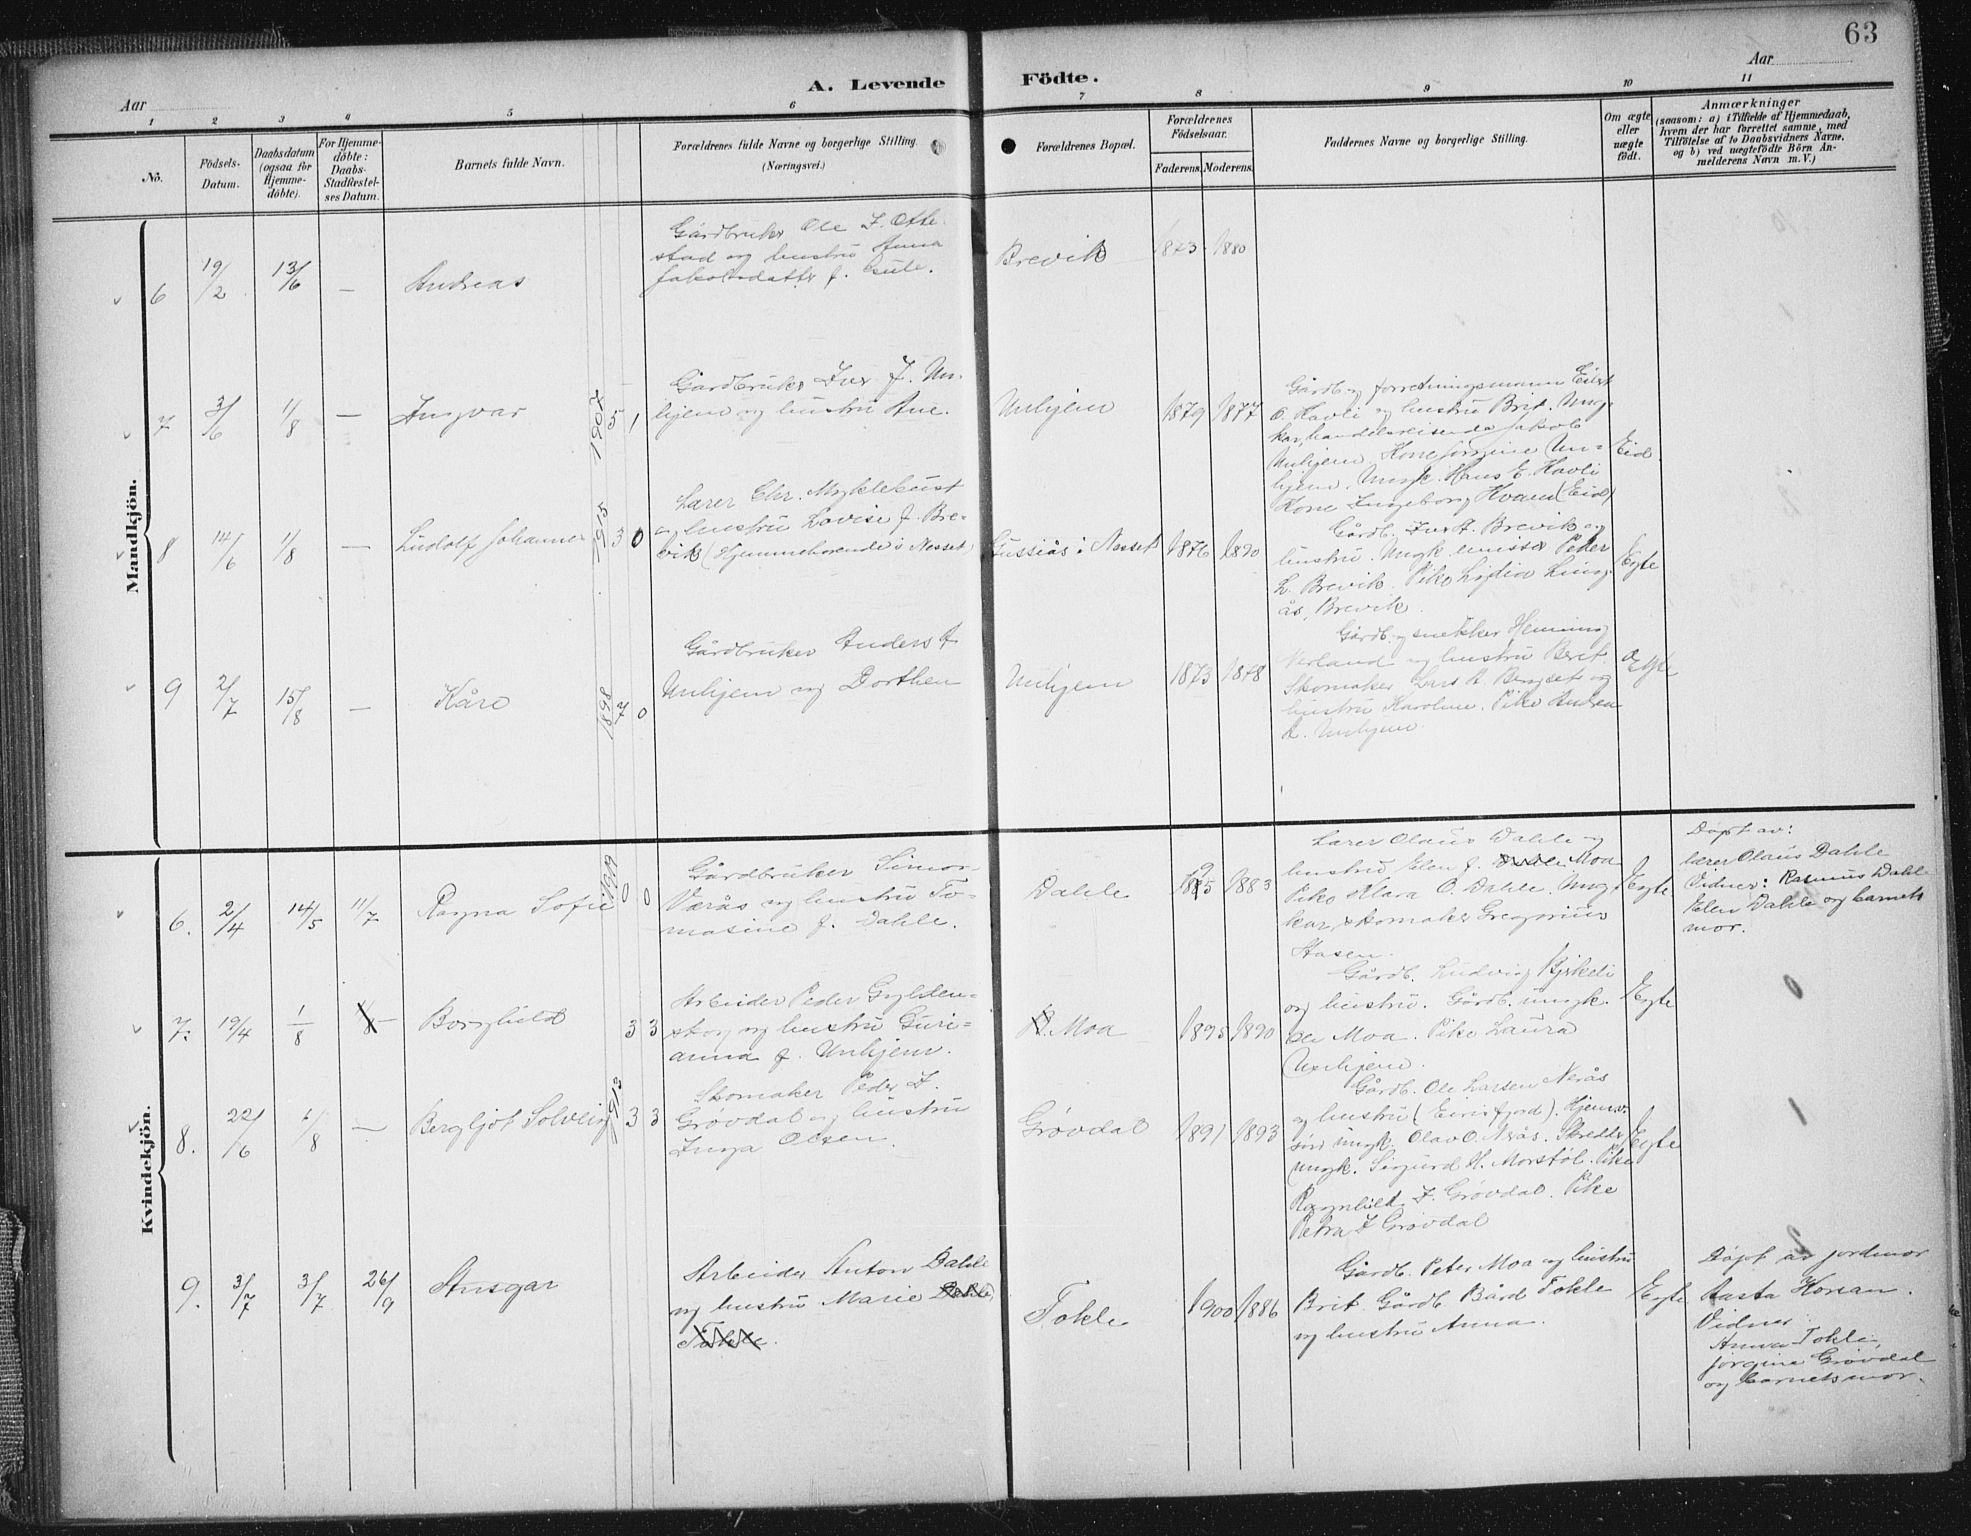 63
A. Levende Födte.
Aar
Aar
1 2 3 4 5 6 7 8 9 10 11
No.
Födsels-Datum.
Daabsdatum (ogsaa for Hjemmedöbte).
For Hjemmedöbte: Daabs-Stadfæstelses Datum.
Barnets fulde Navn.
Forældrenes fulde Navne og borgerlige Stilling. (Næringsvei.)
Forældrenes Bopæl.
Forældrenes Födselsaar.
Faderens. Moderens.
Faddernes Navne og borgerlige Stilling.
Om ægte eller uægte födt.
Anmærkninger
(saasom: a) i Tilfælde af Hjemmedaab, hvem der har forrettet samme, med Tilföielse af to Daabsvidners Navne, og b) ved uægtefödte Börn Anmelderens Navn m. V.)
Mandkjön.
6 19/2 13/6 — Andreas
Gårdbruker Ole I. Otte-
stad og hustru Anna
Jakobsdatter f.
Brevik 1873 1880
7 3/6 1/8 — Ingvar 1907 5 1
Gårdbruker Iver J. Un-
hjem og hustru Ane.
Unhjem 1879 1877
Gårdb. og forretningsmann
O. Havli og hustru Brit. Ung-
kar, handelsreisende Jakob
Unhjem. Kone Jørgine Un-
hjem. Ungk. Hans E. Havli
Kone Ingeborg Hvam (Eid)
Eid
8 14/6 1/8 — Ludolf Johannes 1915 3 0
Lærer Chr. Myklebust
og hustru Lovise f. Bre-
vik (Hjemmehørende i Nesset)
Gussiås i Nesset 1876 1890
Gårdb. Iver A. Brevik og
hustru. Ungk. emissær Peder
L. Brevik. Pike Lydia Ling-
ås, Brevik.
Egte
9 2/7 15/8 — Kåre 1898 7 0
Gårdbruker Anders A.
Unhjem og Dorthea
Unhjem 1873 1878
Gårdb. og snekker Henning
Nerland og hustru Berit.
Skomaker Lars A. Bergset og
hustru Karoline. Pike Andrea
A. Unhjem.
Egte
Kvindekjön.
6. 2/4 14/5 11/7 Ragna Sofie 1909 0 0
Gårdbruker Simon
Værås og hustru To-
masine f. Dahle.
Dahle 1883
Lærer Olaus Dahle og
hustru Elen f. Moa
Pike Klara O. Dahle. Ung-
kar, skomaker Gregorius
Hasen.
Egte
Døpt av:
lærer Olaus Dahle
Vidner: Rasmus Dahle
Elen Dahle og barnets
mor.
7. 19/4 1/8 — Borghild 3 3
Arbeider Peder Gylden-
skog og hustru Guri-
anna f. Unhjem.
Moa 1895 1890
Gårdb. Ludvig Kirkeli
og hustru. Gårdb. ungk.
Ole Moa. Pike Laura
Unhjem.
Egte
0
8. 22/6 1/8 — Bergljot Solveig 1913 3 3
Skomaker Peder I.
Grøvdal og hustru
Inga Olsen.
Grøvdal 1891 1893
Gårdb. Ole Larsen Nerås
og hustru (Eirisfjord). Hjemv.
ungk. Olav O. Nerås. Skredder
ungk. Sigurd H. Morstøl. Pike
Ragnhild I. Grøvdal. Pike
Petra I. Grøvdal
Egte
1
9. 3/7 3/7 26/9 Ansgar
Arbeider Anton Dahle
og hustru Marie Dahle,
Tokle.
Tokle 1900 1886
Gårdb. Peter Moa og hustru
Brit. Gårdb. Bård Tokle
og hustru Anna.
Egte
Døpt av jordmor
Aasta Horsan.
Vidner
Anna Tokle,
Jørgine Grøvdal
og barnets mor.